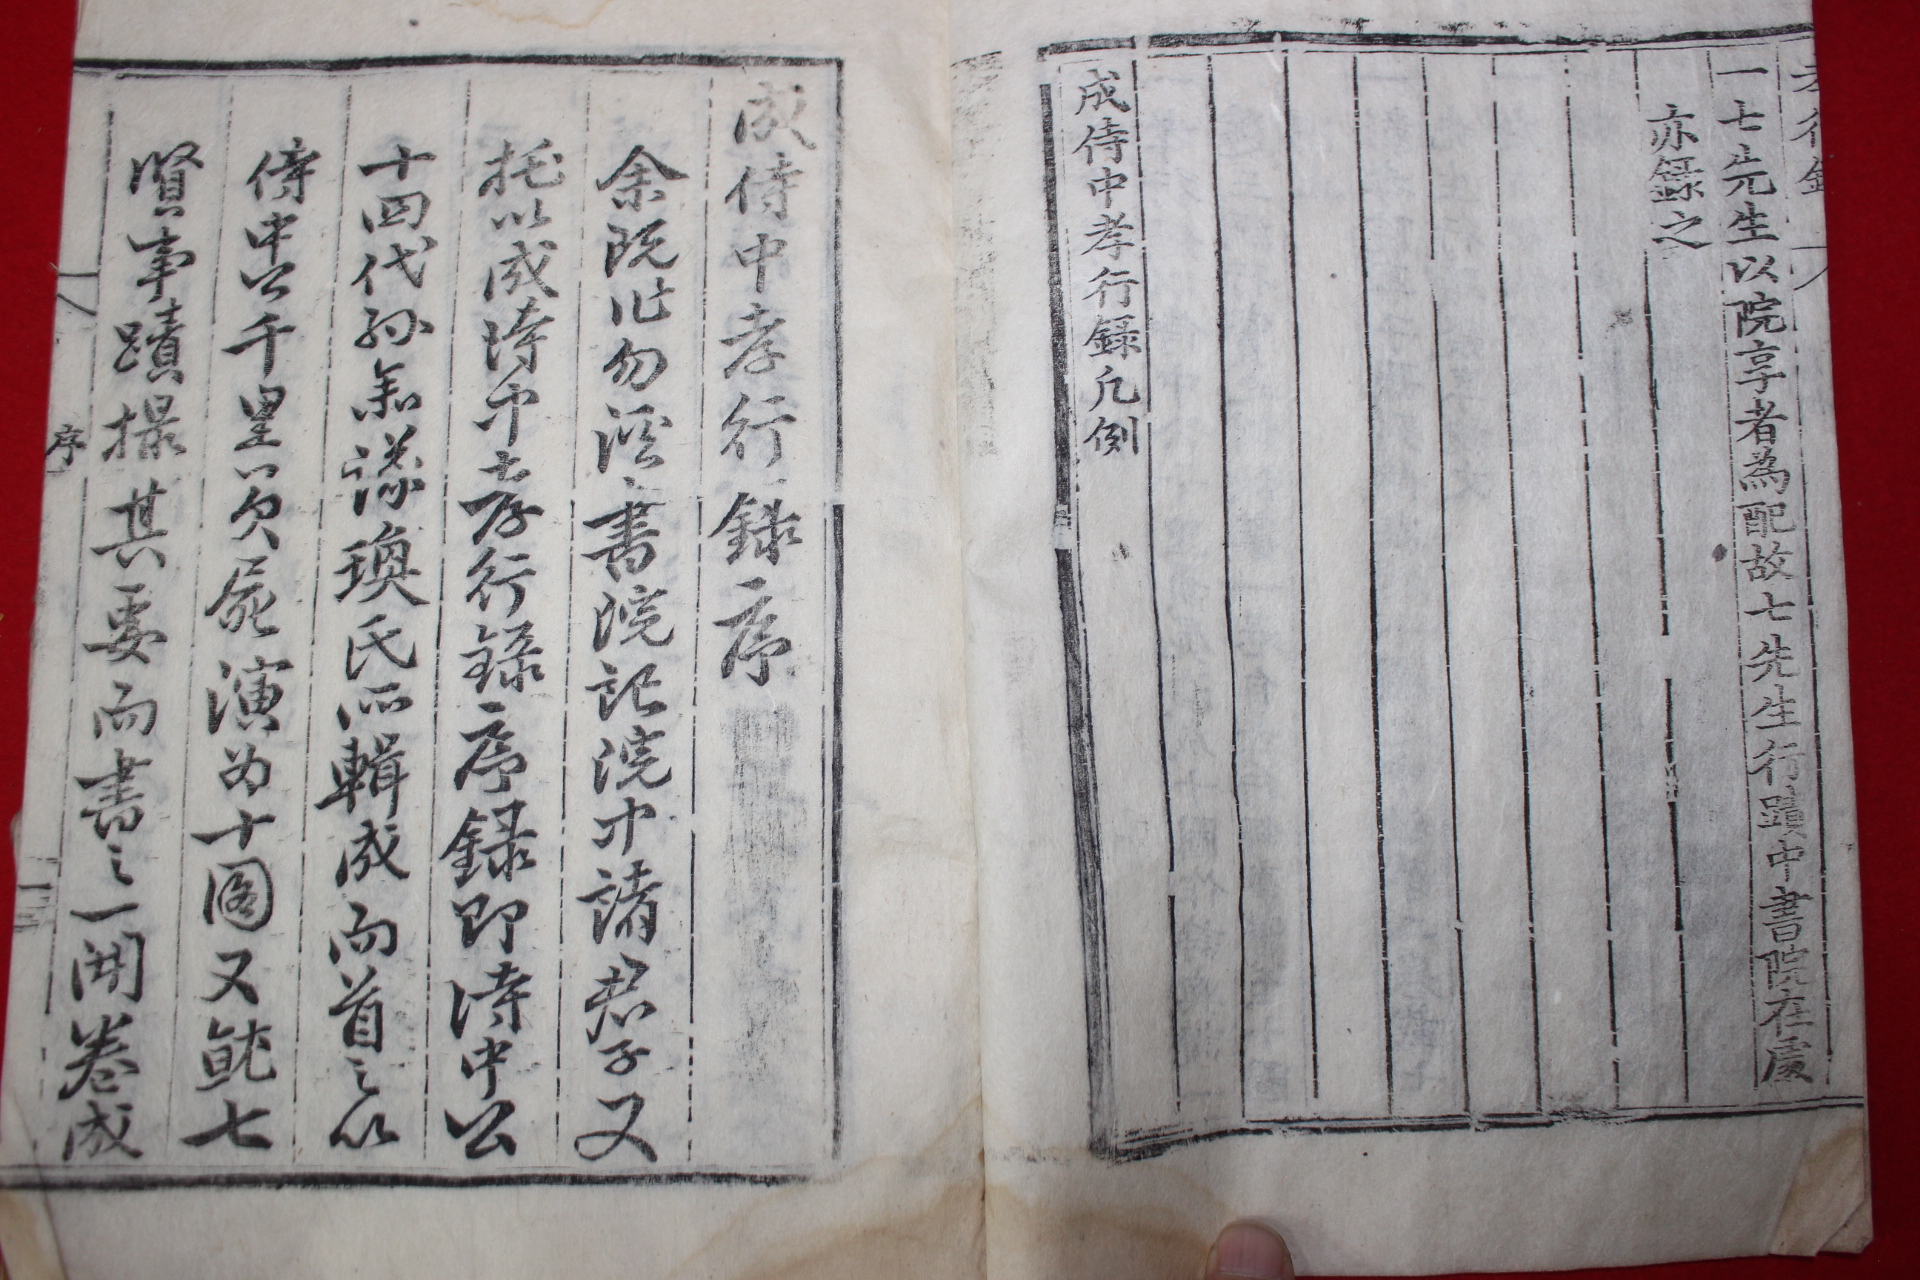 孝行錄
一七先生以院享者為配故七先生行蹟中書院在處
亦錄之
成侍中孝行錄凡例
成侍中孝行錄序
余既作勿溪書院記院中諸君子又
托以成侍中孝行錄序錄即侍中公
十四代孫無逸瑍氏所輯成而首之以
侍中公千里負屍演為十圖又就七
賢事蹟撮其要而書之一開卷成
序